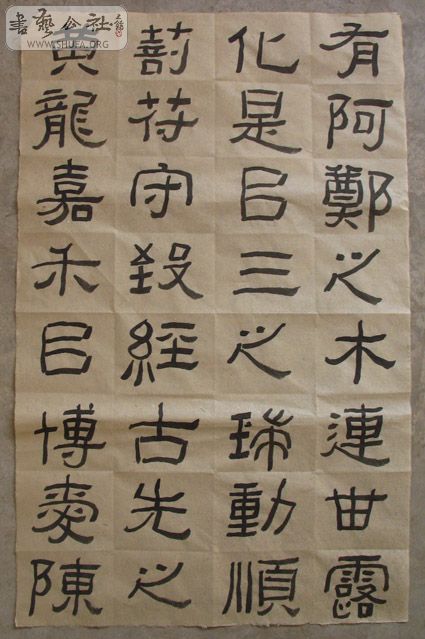 書藝公社
WWW.SHUFA.ORG
有阿鄭之
化是㠯三
剖苻守致
黃龍嘉禾
木連甘露
之瑞動順
經古先之
㠯博愛陳